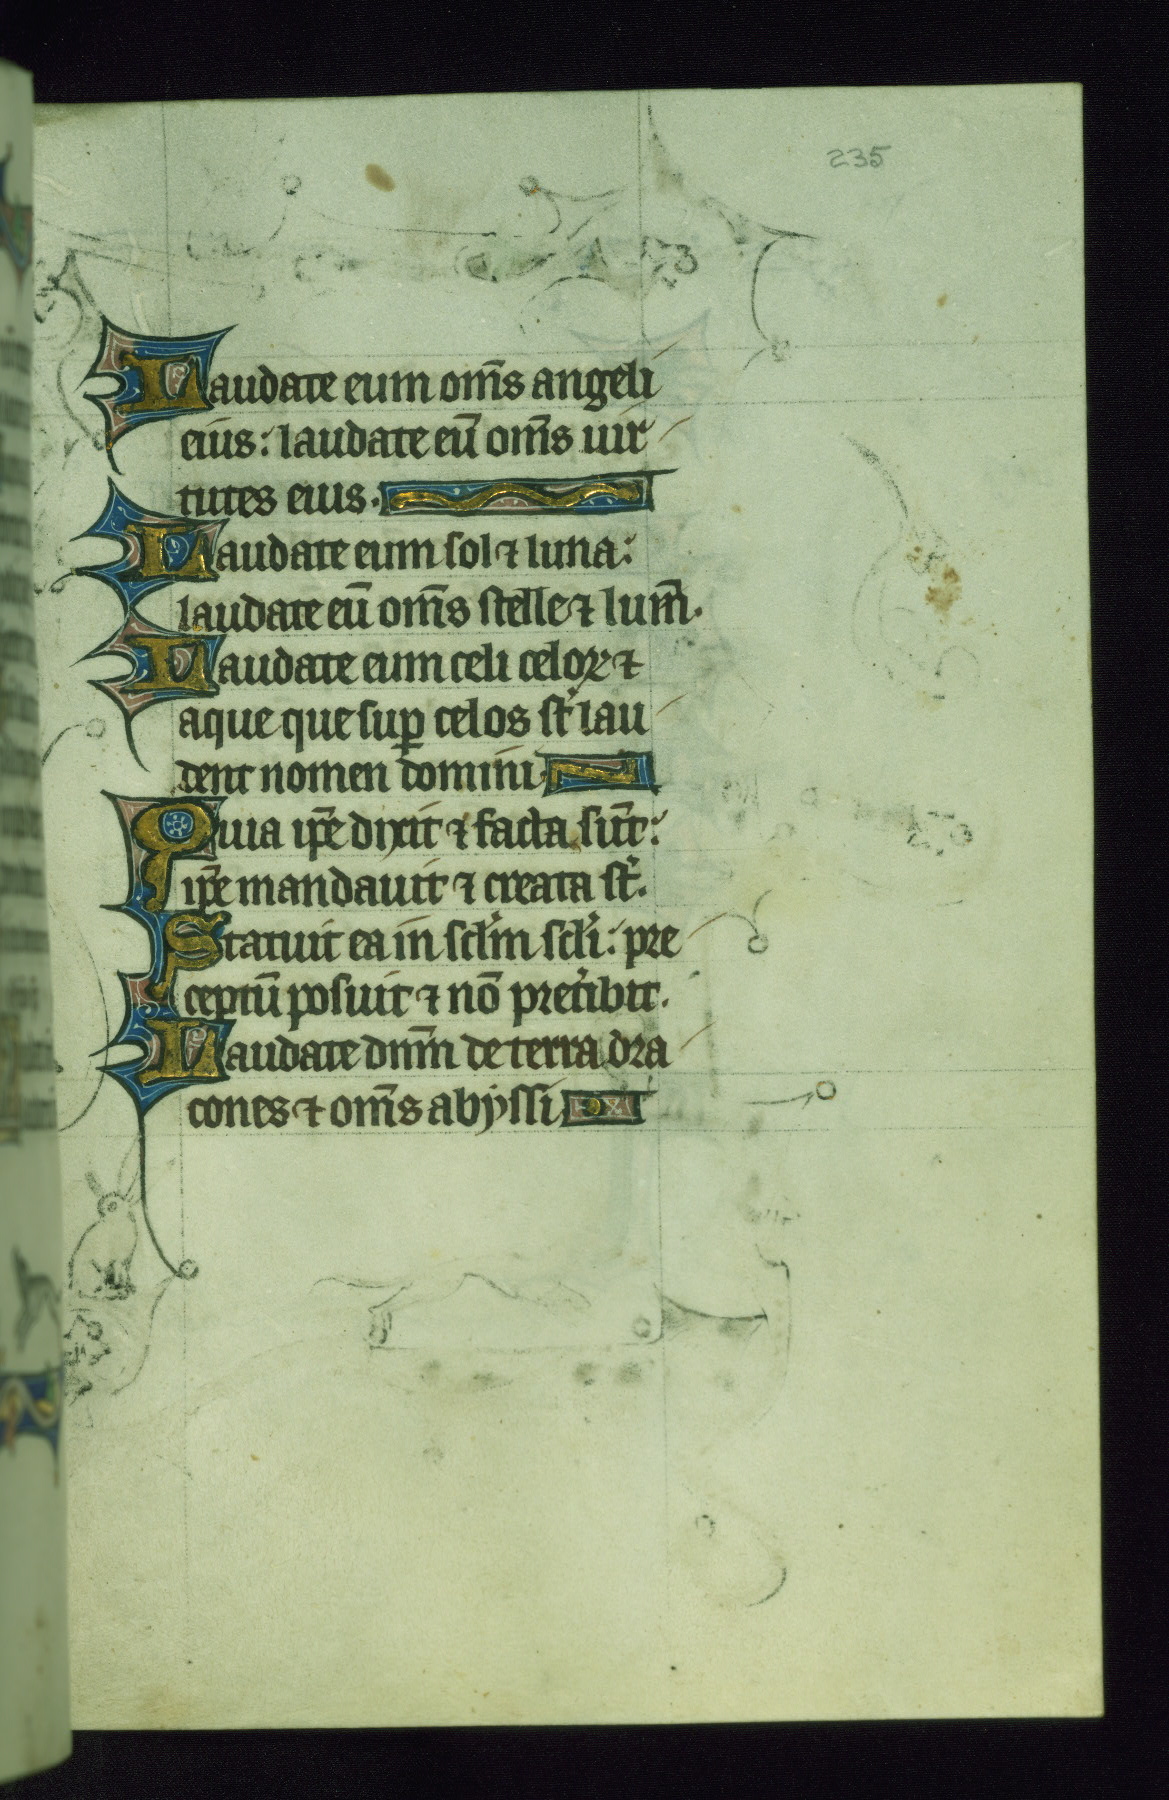 235
Laudate eum om̄s angeli
eius: laudate eū om̄s uir
tutes eius.
Laudate eum sol ⁊ luna:
laudate eū om̄s stelle ⁊ lum̄.
Laudate eum celi celoꝝ ⁊
aque que suꝑ celos st̉ lau
dent nomen domini
Quia ip̄e dixit ⁊ facta sūt:
ip̄e mandauit ⁊ creata st̉.
Statuit ea in scl̉m scl̉i: pre
ceptū posuit ⁊ nō pret̉ibit.
Laudate dn̄m de terra dra
cones ⁊ om̄s abyssi